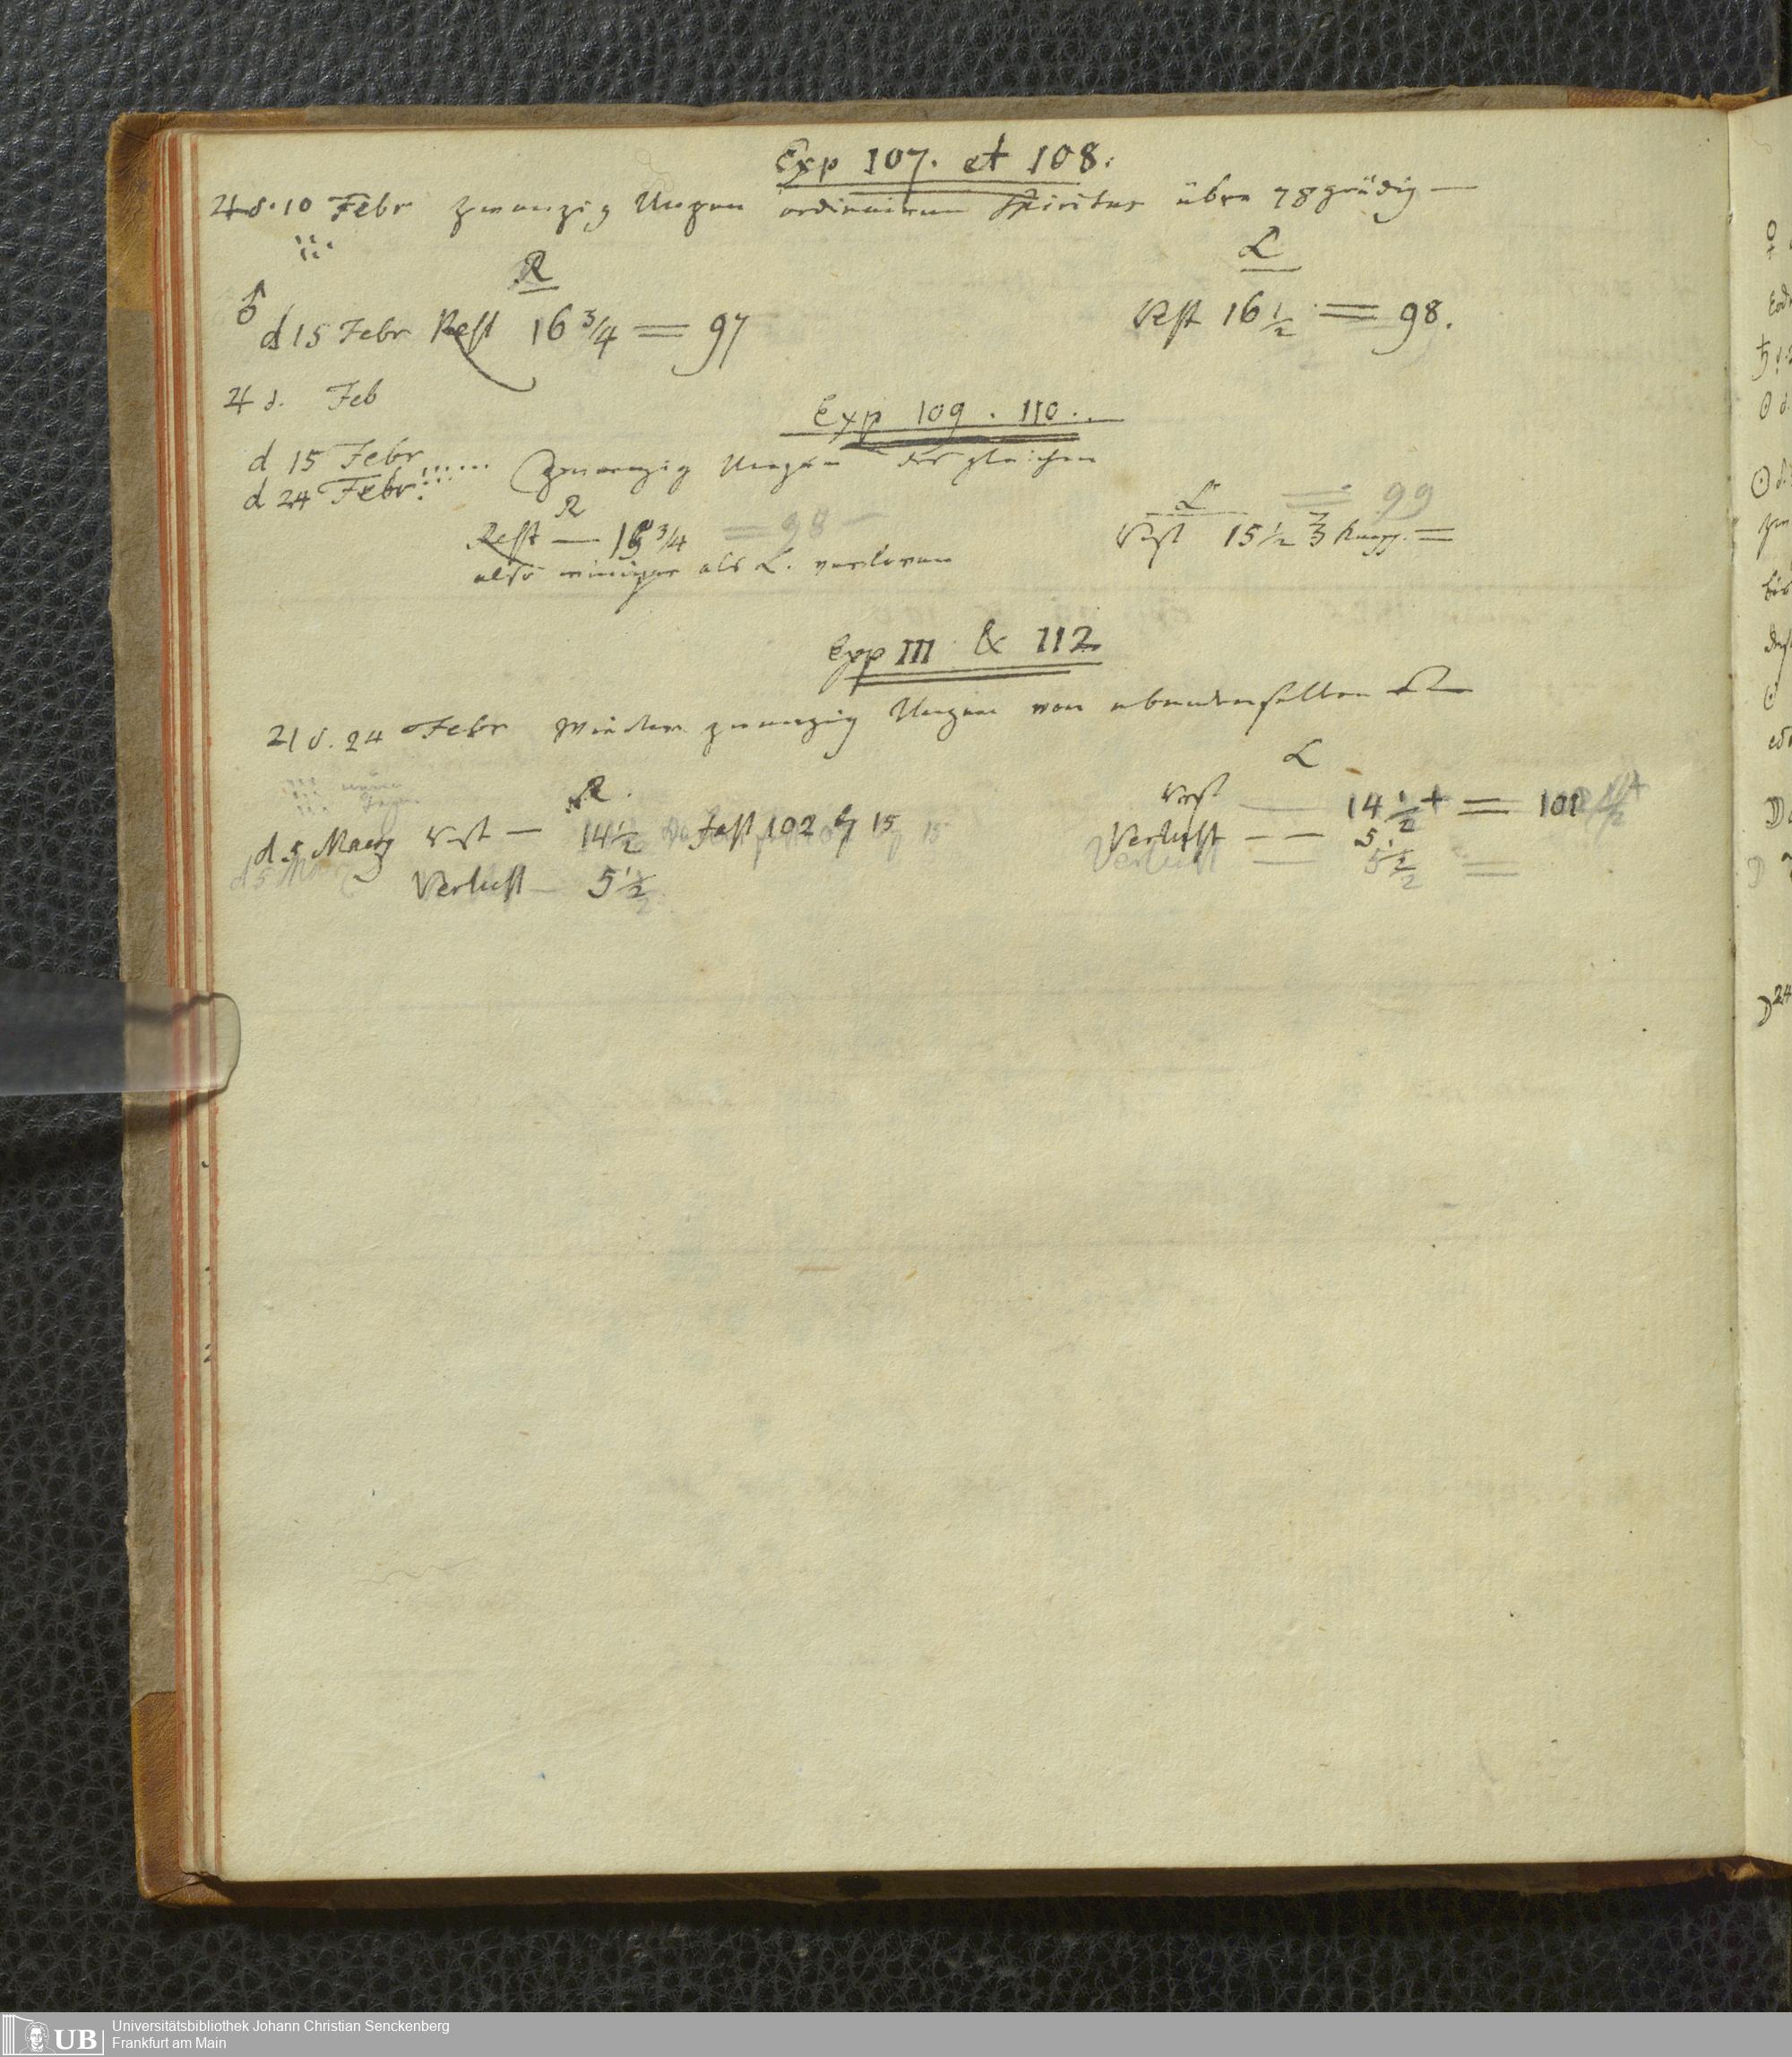 Exp 107. et 108.
♃ d. 10 Febr zwanzig Unzen ordinairen Spiritus über 78 grädig —
R
L
♂ d 15 Febr Rest 16 3/4 = 97
Rest 16 1/2 = 98.
♃ d. Feb
Exp 109. 110.
d 15 Febr
d 24 Febr. zwanzig Unzen des gleichen
R
L
= 99
Rest — 16 3/4 = 98 —
Rest 15 1/2 knapp. =
also weniger als L. verloren
Exp 111 & 112
♃ d. 24 Febr wieder zwanzig Unzen von ebendemselben
L
neun
Tage
R.
Rest — 14 1/2 + = 101
d 5 Maerz Rest — 14 1/2 fast 102 15
Verlust — — 5 1/2
Verlust 5 1/2
UB
Universitätsbibliothek Johann Christian Senckenberg
Frankfurt am Main